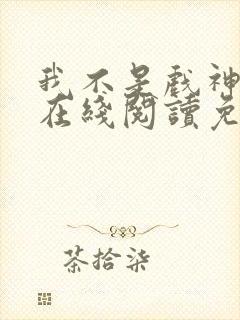 我不是戏神
在綫閱讀免
茶拾柒